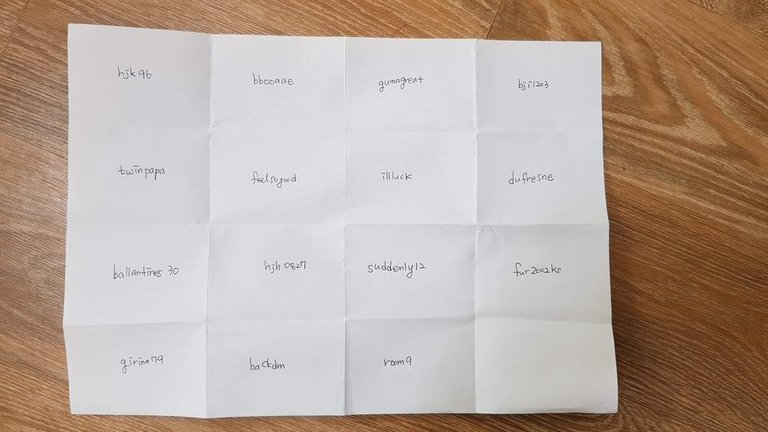 hjk96 bbooaae gumagreat bji1203
twinpapa feelsogood illluck dufresne
ballantines30 hjh0827 suddenly12 fur2002ko
girina79 backdm room9